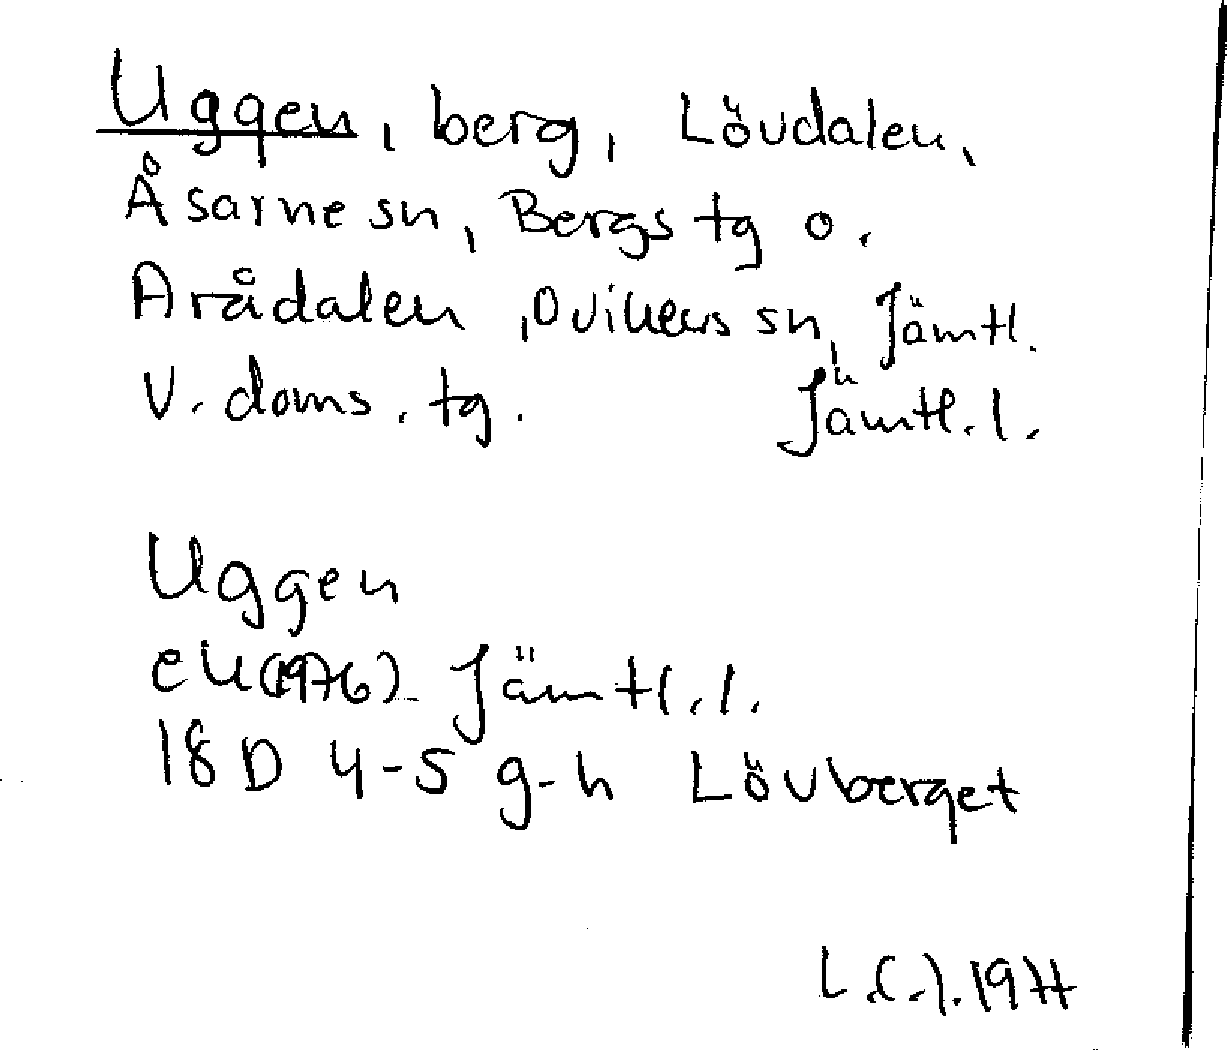 Uggen, berg, Lövdalen,
Åsarne sn, Bergs tg o.
Arådalen, Ovikens sn, Jämtl.
V. doms. tg. Jämtl. l.
Uggen
ek (1976) Jämtl. l.
18 D 4-5 g-h Lövberget
1977